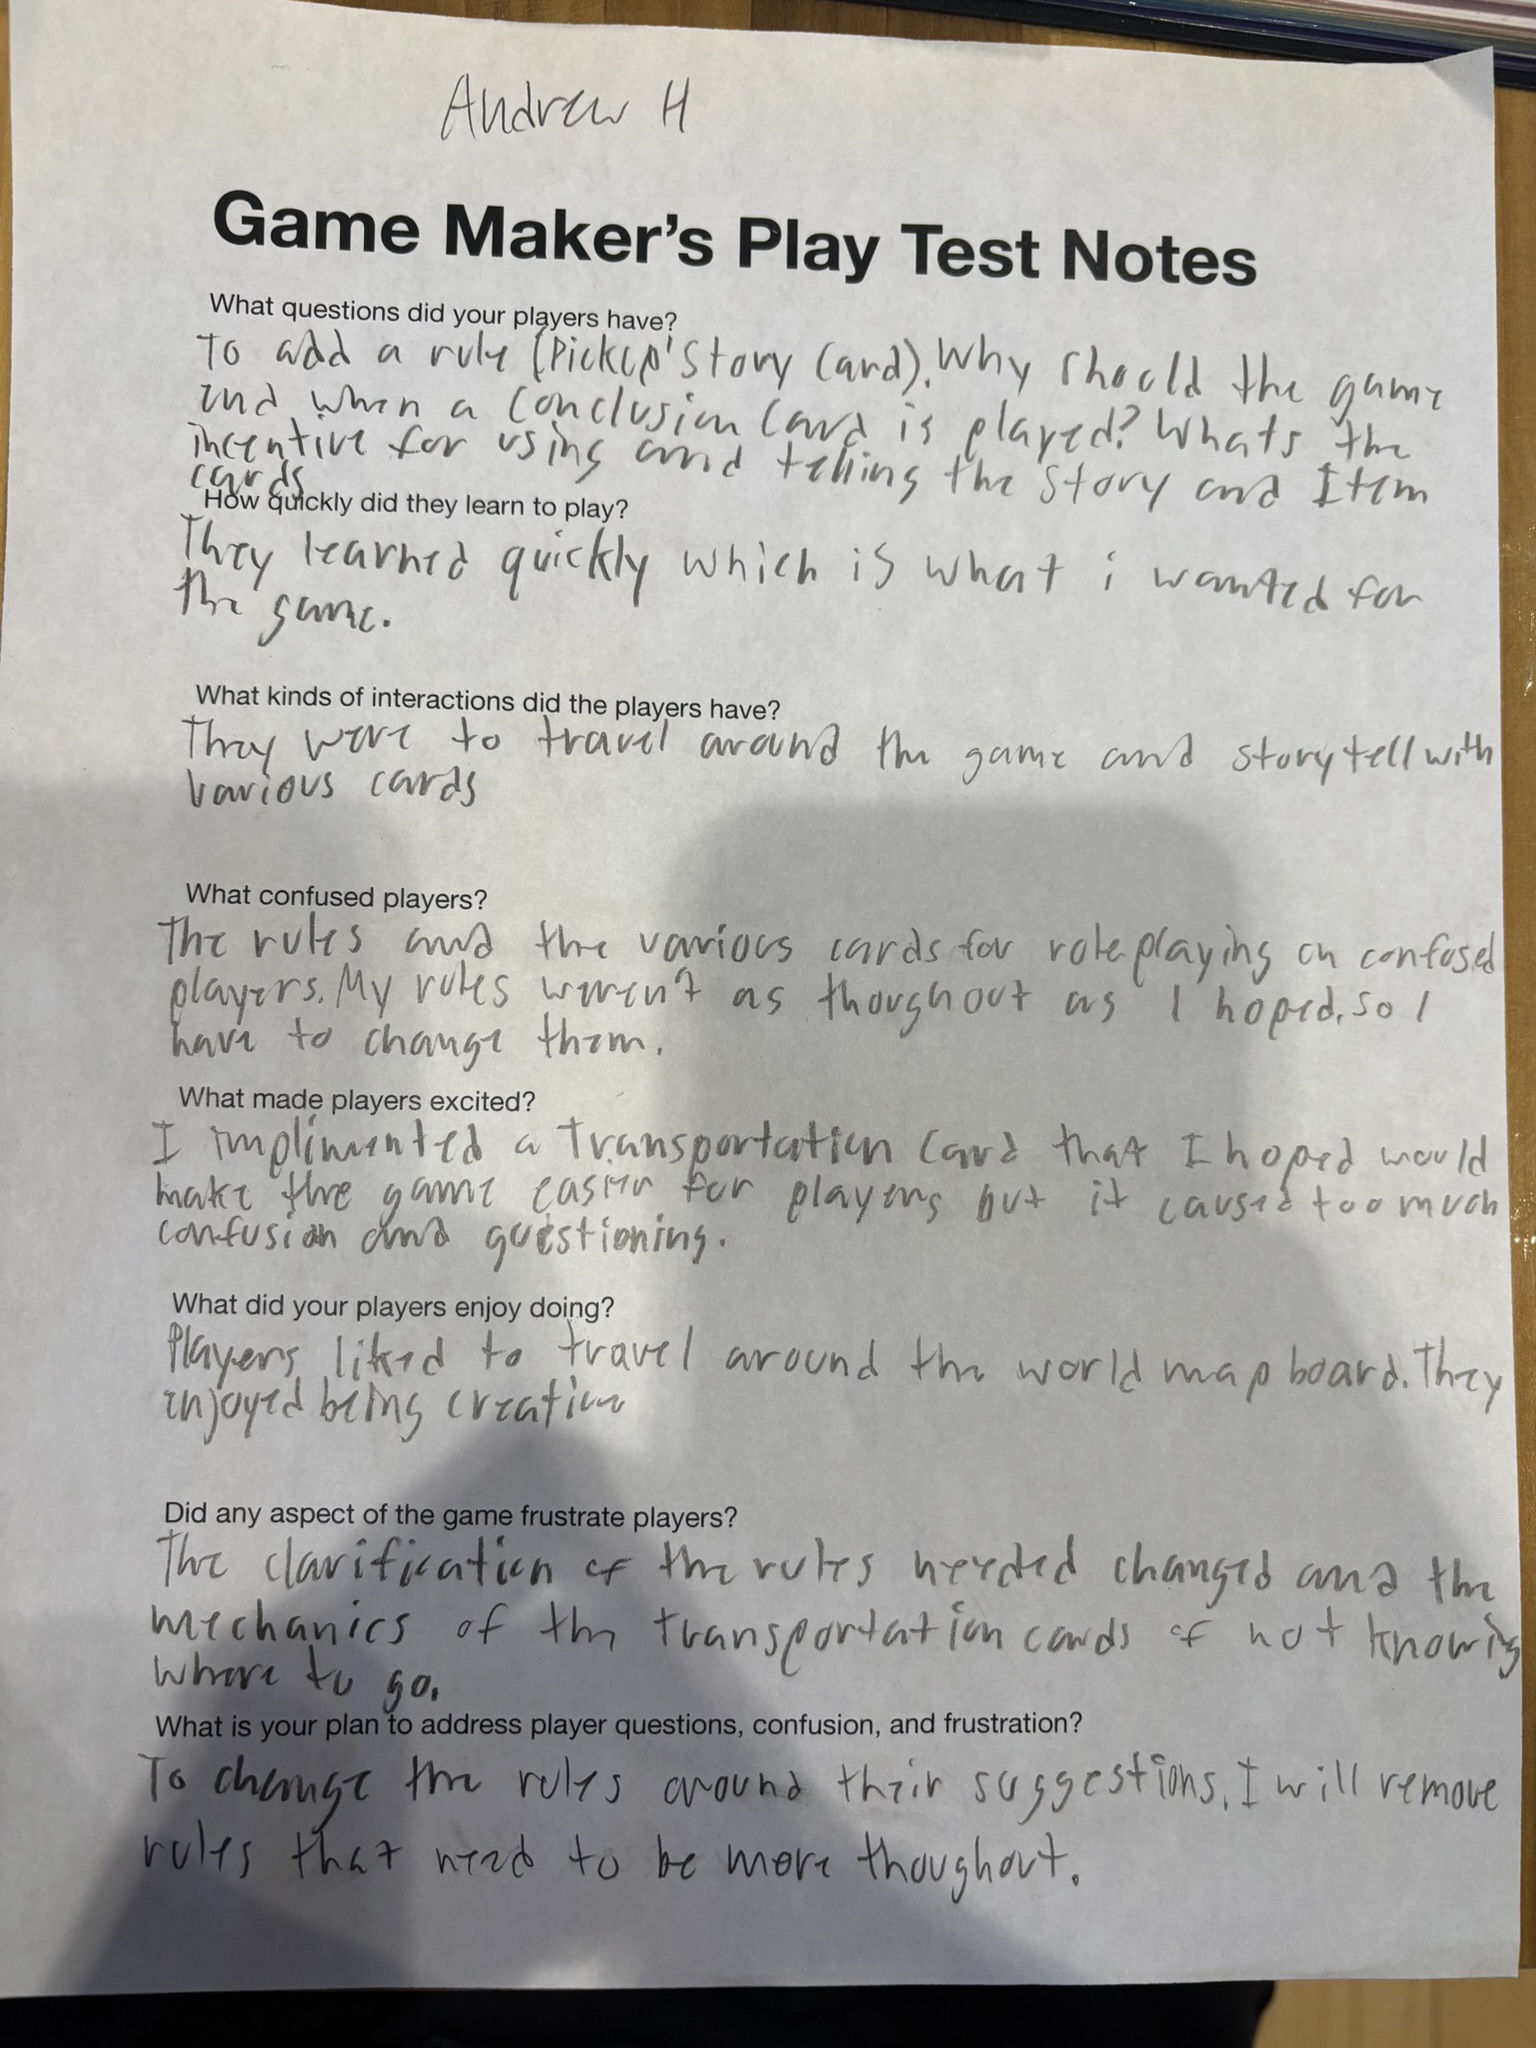 Andrew H
Game Maker's Play Test Notes
What questions did your players have?
To add a rule (Pickup 1 Story Card). Why should the game
end when a Conclusion Card is played? Whats the
incentive for using and telling the Story and Item
cards
How quickly did they learn to play?
They learned quickly which is what i wanted for
the game.
What kinds of interactions did the players have?
They were to travel around the game and storytell with
various cards
What confused players?
The rules and the various cards for roleplaying on confused
players. My rules weren't as thoughout as I hoped. So I
have to change them.
What made players excited?
I implimented a Transportation Card that I hoped would
make the game easier for players but it caused too much
confusion and questioning.
What did your players enjoy doing?
Players liked to travel around the world map board. They
enjoyed being creative
Did any aspect of the game frustrate players?
The clarification of the rules needed changed and the
mechanics of the transportation cards of not knowing
where to go.
What is your plan to address player questions, confusion, and frustration?
To change the rules around their suggestions. I will remove
rules that need to be more thoughout.